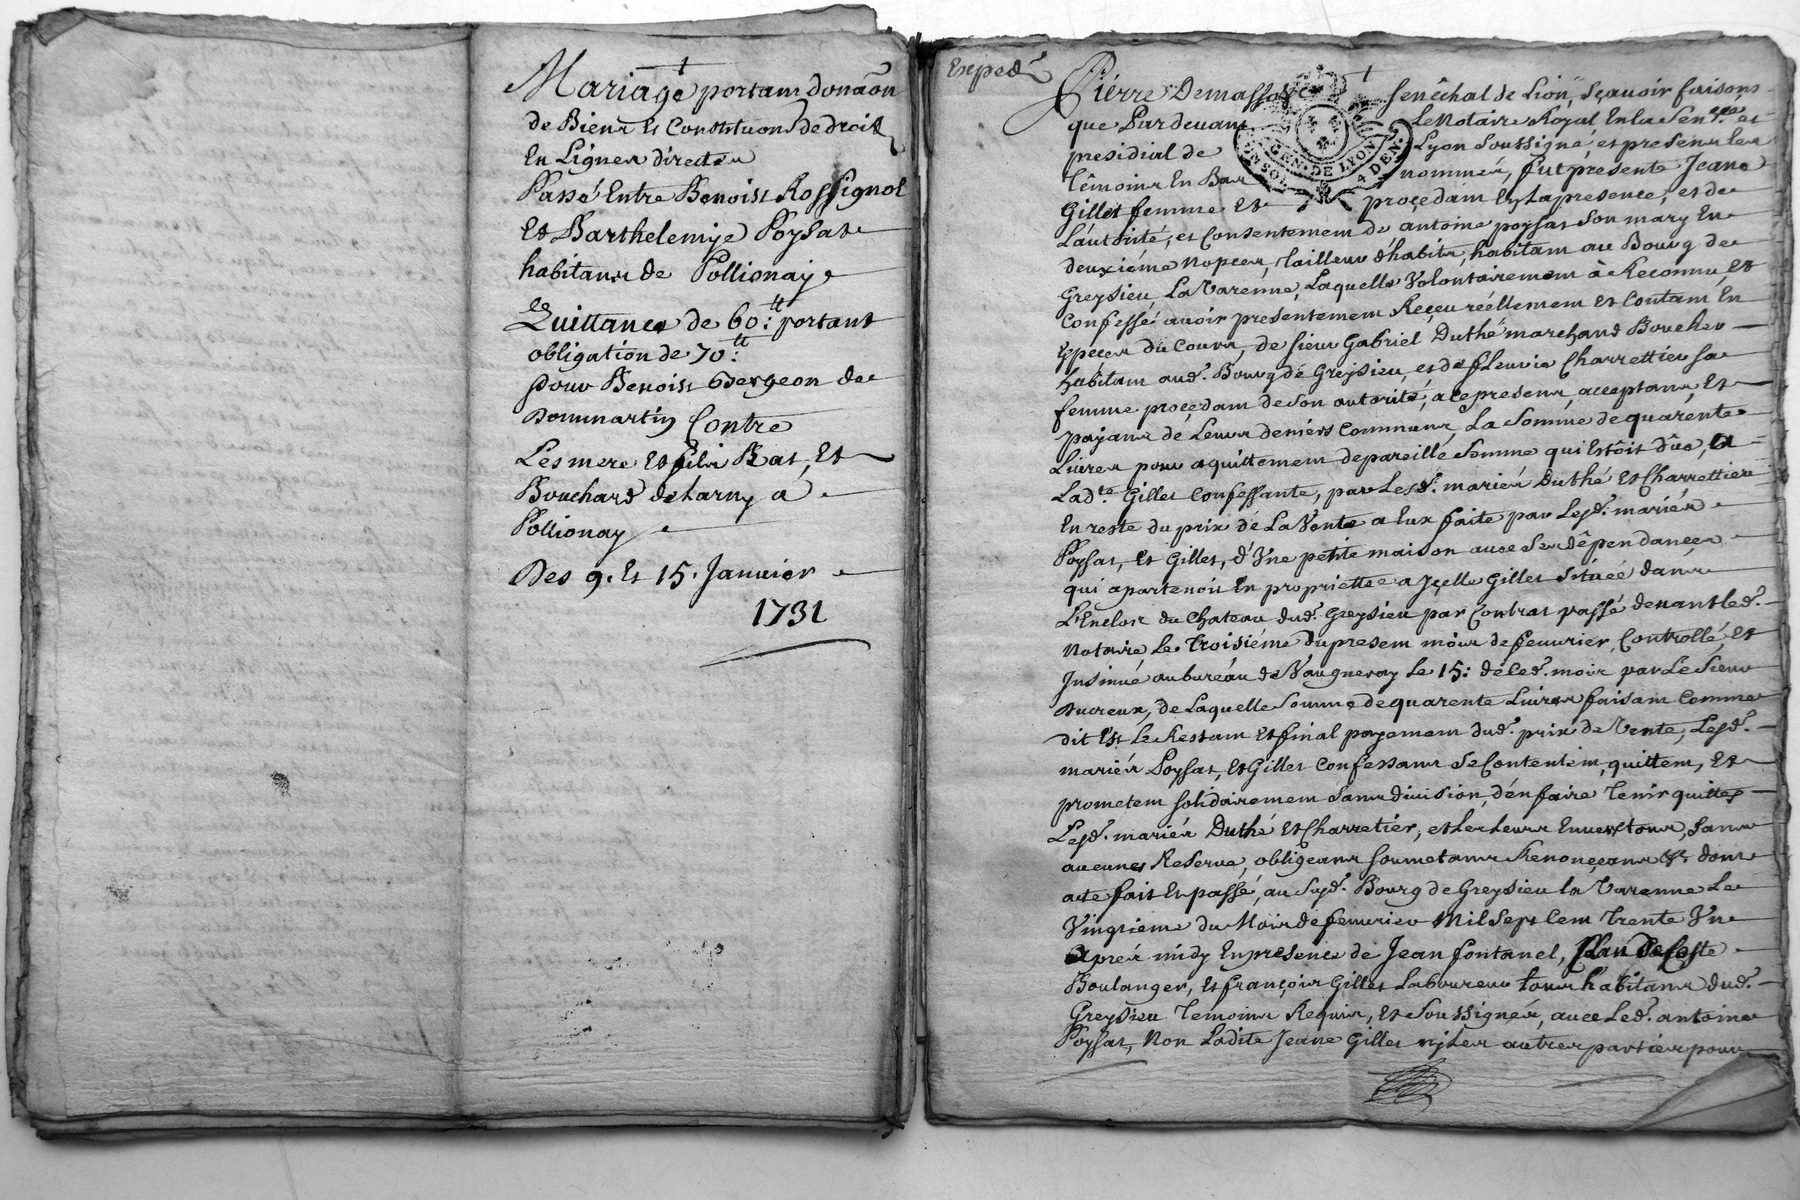 Mariage portant donãon
de Biens et Constitutions de droits
En Lignes directes
Passé Entre Benoist Rossignol
Et Barthelemye Poysat
habitans de Pollionay
Quittance de 60:tt portant
obligation de 70:tt
pour Benoist Bergeon de
Dommartin Contre
Les mere Et fils Rat, Et
Bouchard de Larny a
Pollionay
Des 9. Et 15. Janvier
1731
Exped.
Pierre Demassas senéchal de Lion, sçavoir faisons
que Pardevant Le Notaire Royal En la Sen.ée et
presidial de Lyon soussigné, et presens Les
Témoins En Bas nommés, fut présente Jeane
Gillet femme Et procedant En la presence, et de
L'autorité, et Consentement de antoine poysat son mary En
deuxiéme nopces, Tailleur d'habits, habitant au Bourg de
Greysieu La Varenne, Laquelle Volontairement à Reconnu Et
Confessé avoir presentement Reçeu réellement Et Contant En
Especes du Cours, de sieur Gabriel Duthé marchand Boucher
habitant aud. Bourg de Greysieu, et de fleurie Charrettier sa
femme procedant de son autorité, a ce presens, acceptans, Et
payans de Leurs deniers Communs, La Somme de quarente
Livres pour aquittement de pareille Somme qui Estoit dûe, a
Lad.te Gillet Confessante, par Lesd. mariés Duthé et Charrettier
En reste du prix de La Vente a Eux faite par Lesd. mariés
Poysat, Et Gillet, d'Une petite maison avec Ses dépendances
qui apartenoit En propriettée a Jcelle Gillet située dans
L'Enclos du Chateau dud. Greysieu par Contrat passé devant led.
Notaire Le Troisiéme du present mois de fevrier, Controllé, Et
Jnsinué au bureau de Vaugneray Le 15: de Ced. mois par Le Sieur
Ducreux, de Laquelle Somme de quarente Livres faisant Comme
dit Est Le Restant Et final payement dud. prix de Vente, Lesd.
mariés Poysat, Et Gillet Confessans Se Contentent, quittent, Et
prometent solidairement sans division, d'en faire Tenir quittes
Lesd. mariés Duthé Et Charretier, et Les Leurs Envers tous, sans
aucunes Reserve, obligeans soumetans Renonçans &c dont
acte fait Et passé, au Susd. Bourg de Greysieu la Varenne Le
Vingtieme du Mois de fevrier Mil Sept Cent Trente Un
Aprés midy En presence de Jean fontanel, Claude Coste
Boulanger, Et françois Gillet Laboureur tous habitans dud.
Greysieu Temoins Requis, Et Soussignés, avec Led. antoine
Poysat, Non Ladite Jeane Gillet ny Les autres parties pour
GEN. DE LYON
4 DEN.